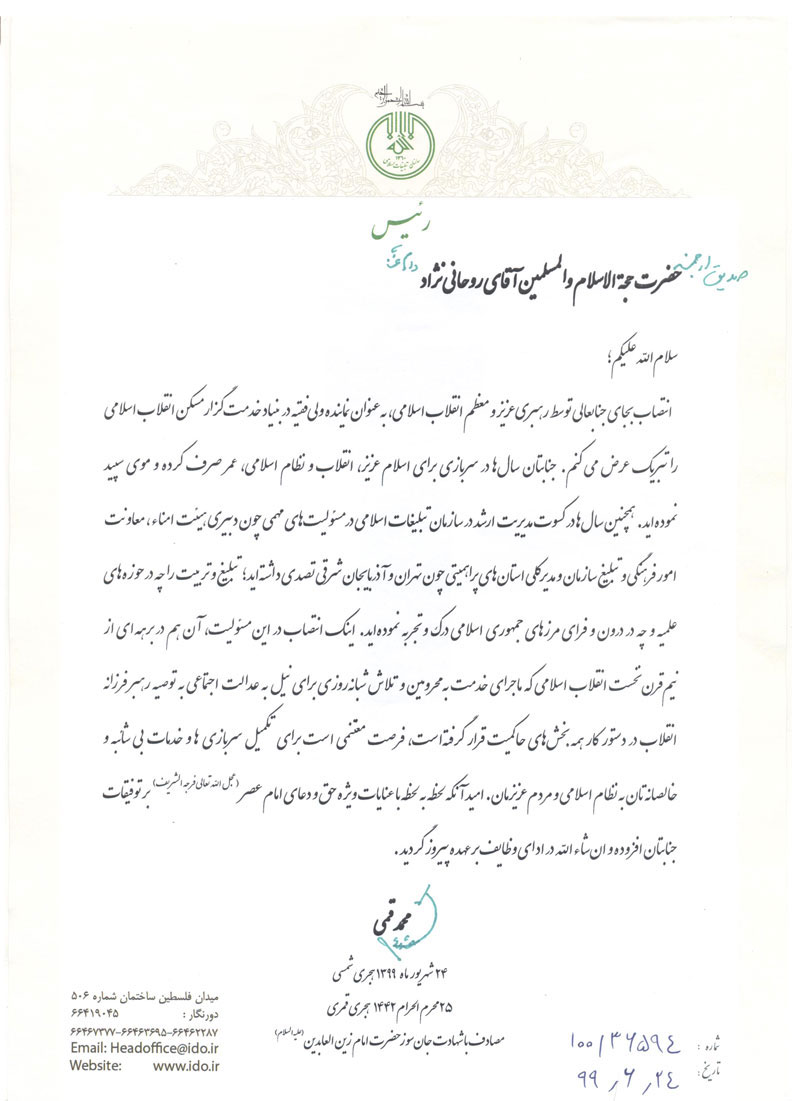 بسم الله الرحمن الرحیم
۱۳۶۰
سازمان تبلیغات اسلامی
رئیس
صدیق ارجمند حضرت حجة الاسلام والمسلمین آقای روحانی نژاد دام عزّه
سلام الله علیکم؛
انتصاب بجای جنابعالی توسط رهبری عزیز و معظم انقلاب اسلامی، به عنوان نماینده ولی فقیه در بنیاد خدمت گزار مسکن انقلاب اسلامی
را تبریک عرض می کنم. جنابتان سال ها در سربازی برای اسلام عزیز، انقلاب و نظام اسلامی، عمر صرف کرده و موی سپید
نموده اید. همچنین سال ها در کسوت مدیریت ارشد در سازمان تبلیغات اسلامی در مسئولیت های مهمی چون دبیری هیئت امناء، معاونت
امور فرهنگی و تبلیغ سازمان و مدیرکلی استان های پراهمیتی چون تهران و آذربایجان شرقی تصدی داشته اید؛ تبلیغ و تربیت را چه در حوزه های
علمیه و چه در درون و فرای مرزهای جمهوری اسلامی درک و تجربه نموده اید. اینک انتصاب در این مسئولیت، آن هم در برهه ای از
نیم قرن نخست انقلاب اسلامی که ماجرای خدمت به محرومین و تلاش شبانه روزی برای نیل به عدالت اجتماعی به توصیه رهبر فرزانه
انقلاب در دستور کار همه بخش های حاکمیت قرار گرفته است، فرصت مغتنمی است برای تکمیل سربازی ها و خدمات بی شائبه و
خالصانه تان به نظام اسلامی و مردم عزیزمان. امید آنکه لحظه به لحظه با عنایات ویژه حق و دعای امام عصر (عجل الله تعالی فرجه الشریف) بر توفیقات
جنابتان افزوده و ان شاء الله در ادای وظایف بر عهده پیروز گردید.
محمد قمی
۲۴ شهریور ماه ۱۳۹۹ هجری شمسی
۲۵ محرم الحرام ۱۴۴۲ هجری قمری
مصادف با شهادت جان سوز حضرت امام زین العابدین (علیه السلام)
میدان فلسطین ساختمان شماره ۵۰۶
دورنگار: ۶۶۴۱۹۰۴۵
۶۶۴۶۷۳۷۷-۶۶۴۶۳۶۹۵-۶۶۴۶۲۲۸۷
Email: Headoffice@ido.ir
Website: www.ido.ir
شماره: ۱۰۰/۳۶۵۹۴
تاریخ: ۹۹,۶,۲۴